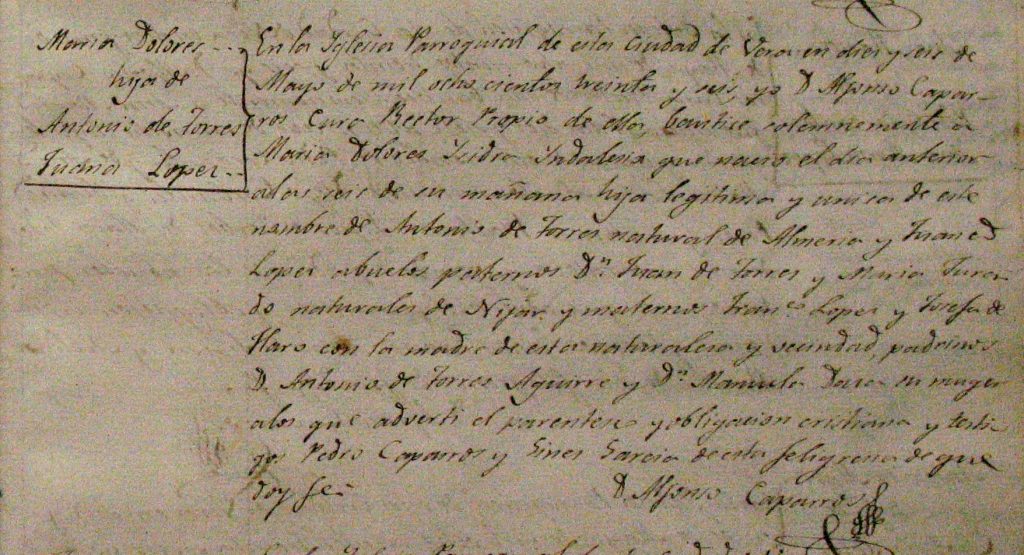 Maria Dolores
hija de
Antonio de Torres
Juana Lopez
En la Yglesia Parroquial de esta ciudad de Vera en dies y seis de
Mayo de mil ocho cientos treinta y seis, yo D. Alfonso Capar-
ros Cura Rector Propio de ella, bautice solemnemente a
Maria Dolores Isidra Yndalesia que nacio el dia anterior
a las seis de su mañana hija legitima y unica de este
nombre de Antonio de Torres natural de Almeria y Juana
Lopez abuelos paternos Dn. Juan de Torres y Maria Jura-
do naturales de Nijar y maternos Franco. Lopez y Josefa de
Haro con la madre de esta naturalesa y vecindad, padrinos
D. Antonio de Torres Aguirre y Da. Manuela su muger
a los que adverti el parentesco y obligacion cristiana y testi-
gos Pedro Caparros y Gines Garcia de esta feligresia de que
doy fe=
D. Alfonso Caparros